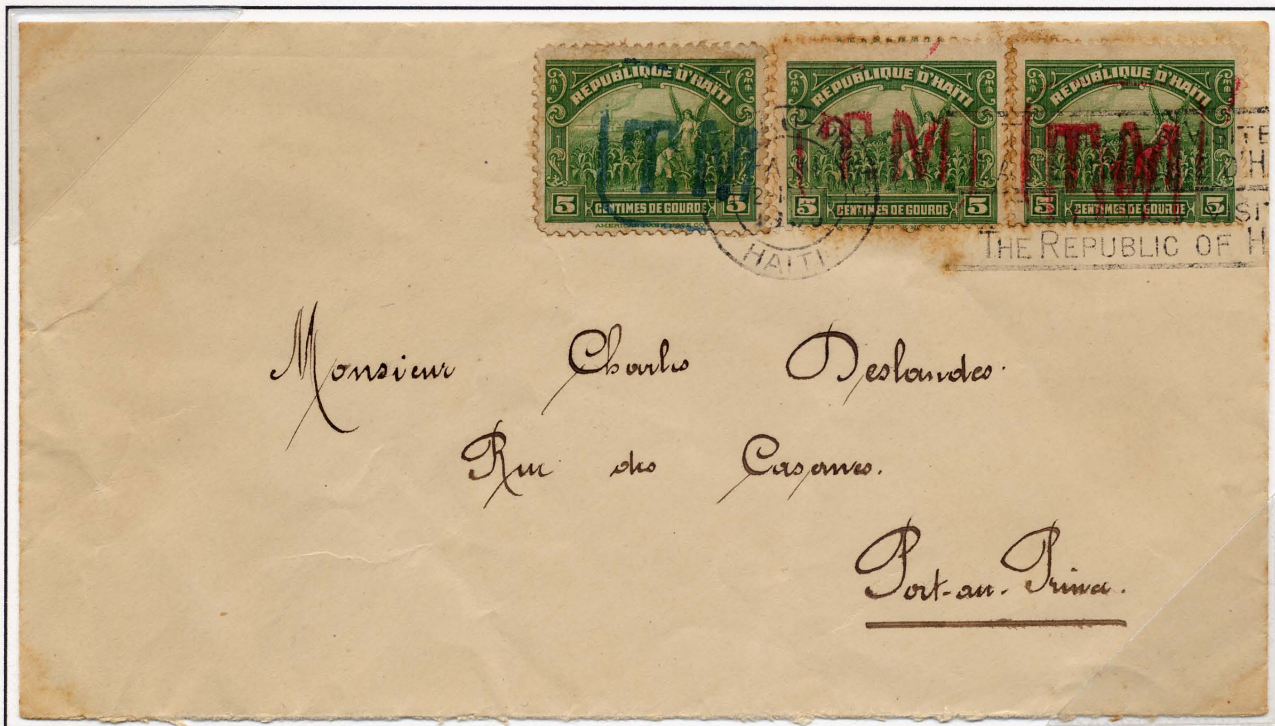 REPUBLIQUE D'HAITI
5 CENTIMES DE GOURDE 5
TM
REPUBLIQUE D'HAITI
5 CENTIMES DE GOURDE 5
TM
REPUBLIQUE D'HAITI
5 CENTIMES DE GOURDE 5
TM
HAITI
THE REPUBLIC OF H
Monsieur Charles Deslandes.
Rue des Casernes.
Port-au-Prince.